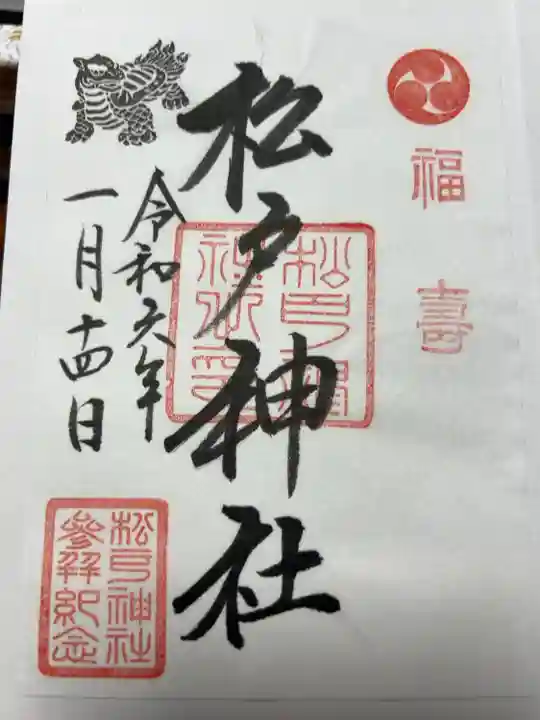 福壽
松戸神社
松戸神
社之印
令和六年
一月十四日
松戸神社
參拜紀念